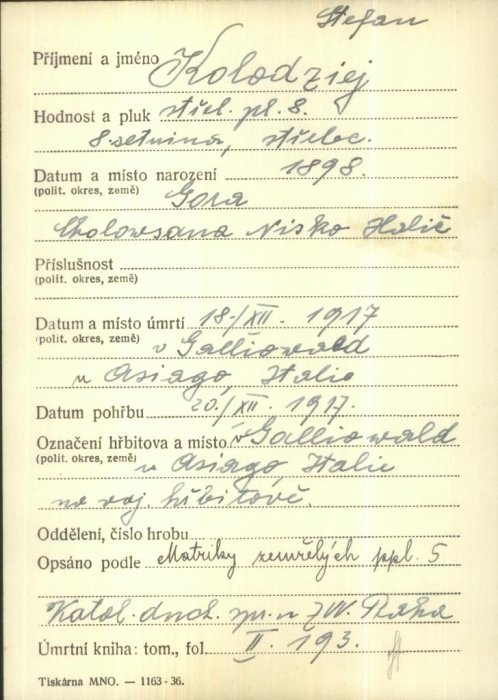 Stefan
Příjmení a jméno Kolodziej
Hodnost a pluk střel. pl. 8.
8. setnina, střelec.
Datum a místo narození 1898.
(polit. okres, země) Gora
Nisko Halič
Příslušnost
(polit. okres, země)
Datum a místo úmrtí 18./XII. 1917
(polit. okres, země) v Galliowald
u Asiago, Italie
Datum pohřbu 20./XII. 1917.
Označení hřbitova a místo v Galliowald
(polit. okres, země) u Asiago, Italie
na voj. hřbitově.
Oddělení, číslo hrobu
Opsáno podle Matriky zemřelých ppl. 5
Katol. duch. spr. u ZVV. Praha
Úmrtní kniha: tom., fol. II. 193.
Tiskárna MNO. — 1163-36.